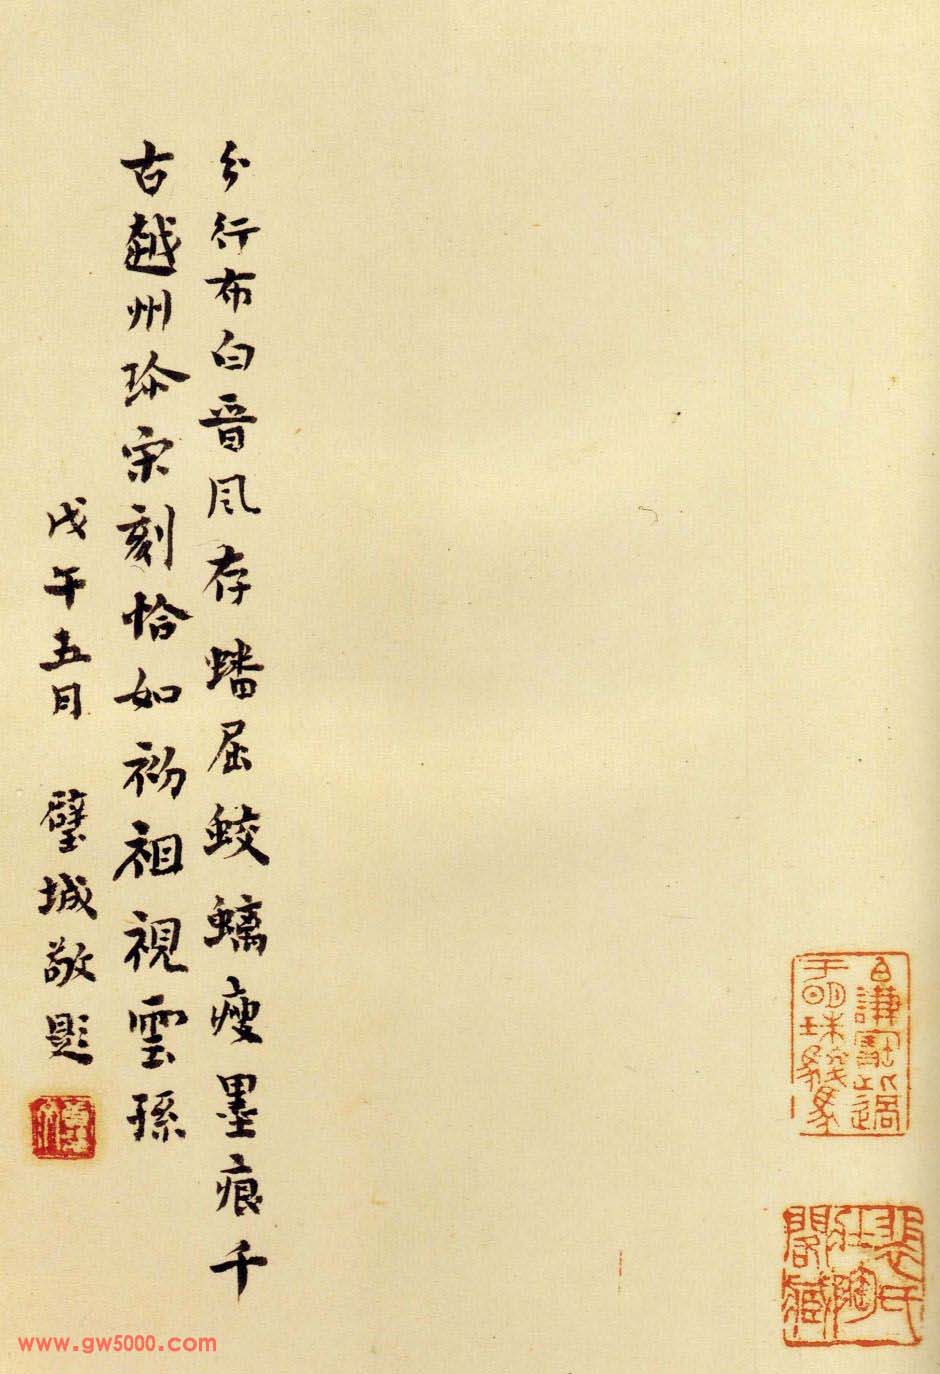 分行布白晉風存蟠屈蛟螭瘦墨痕千
古越州珎宋刻恰如初祖視雲孫
戊午五月 璧城敬題
裴氏壯陶閣藏
www.gw5000.com